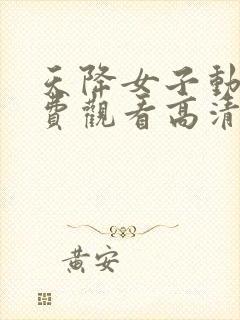 天降女子動
費觀看高清
黃安